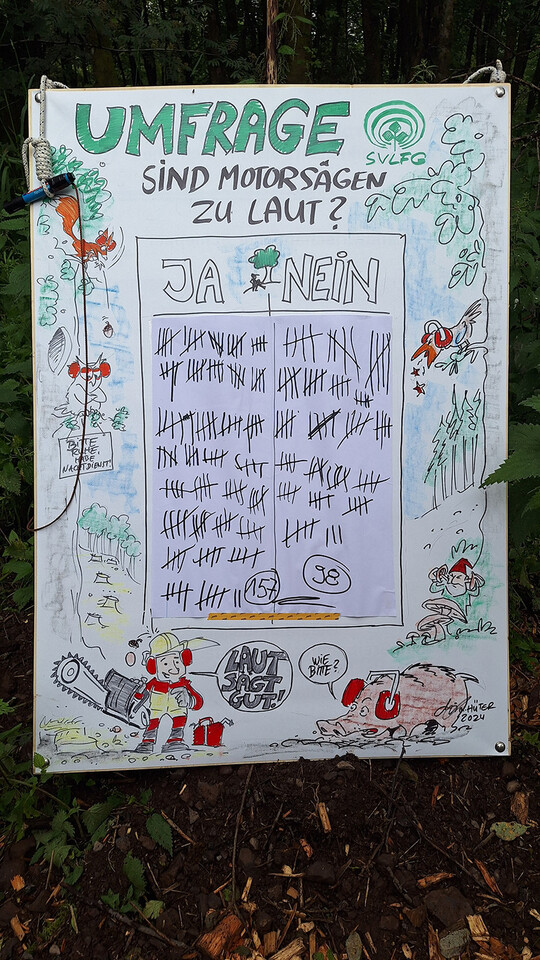 UMFRAGE
SVLFG
SIND MOTORSÄGEN
ZU LAUT?
JA NEIN
BITTE
RUHE,
HABE
NACHTDIENST!
157
98
LAUT
SAGT
GUT!
WIE
BITE?
HÜTER
2024